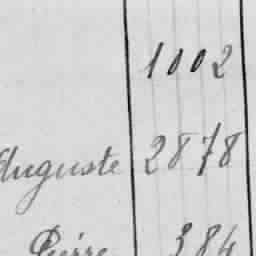 1002
Auguste 2878
Pierre 384